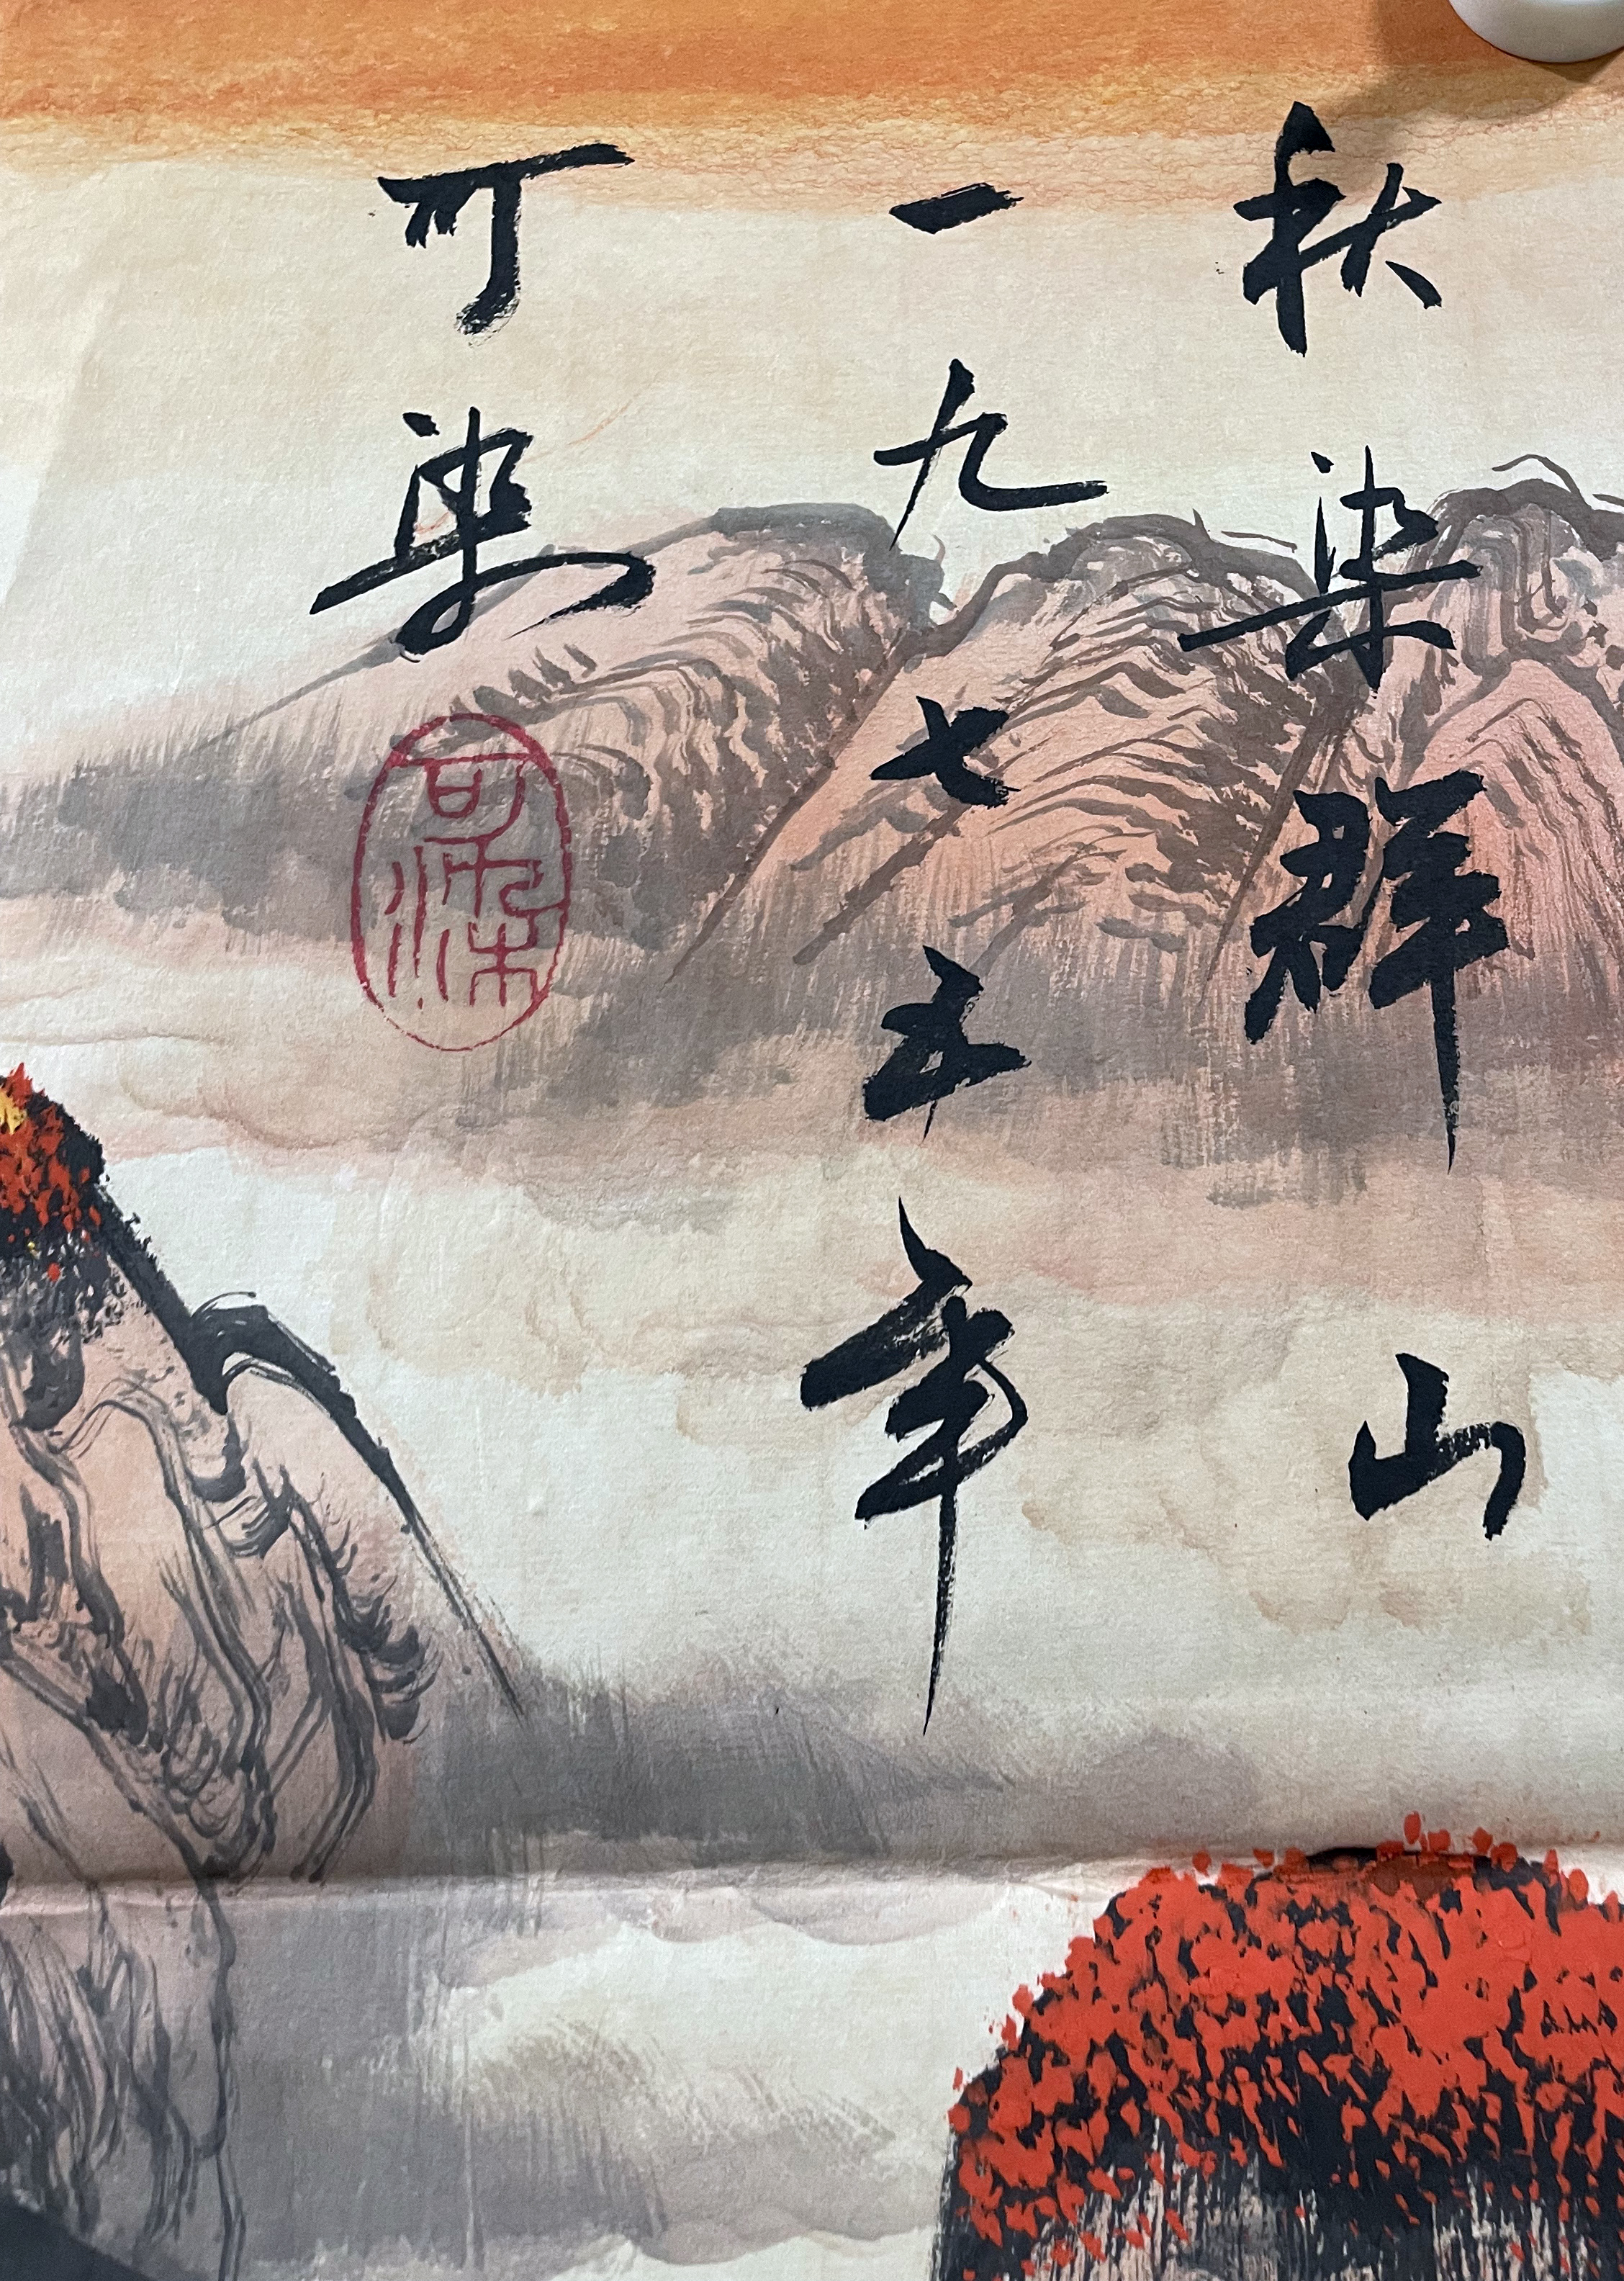 秋染群山
一九七五年
可染
可染